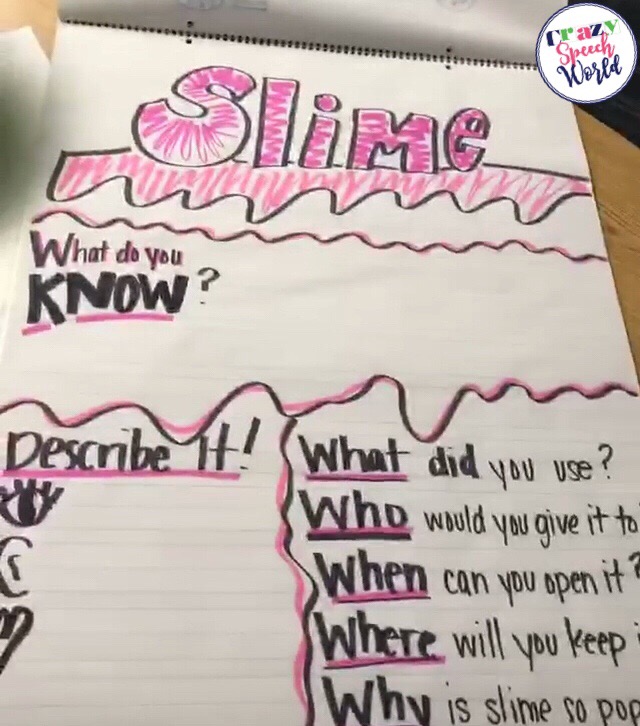 Crazy
Speech
World
Slime
What do you
KNOW?
Describe It!
What did you use?
Who would you give it to
When can you open it?
Where will you keep
Why is slime so